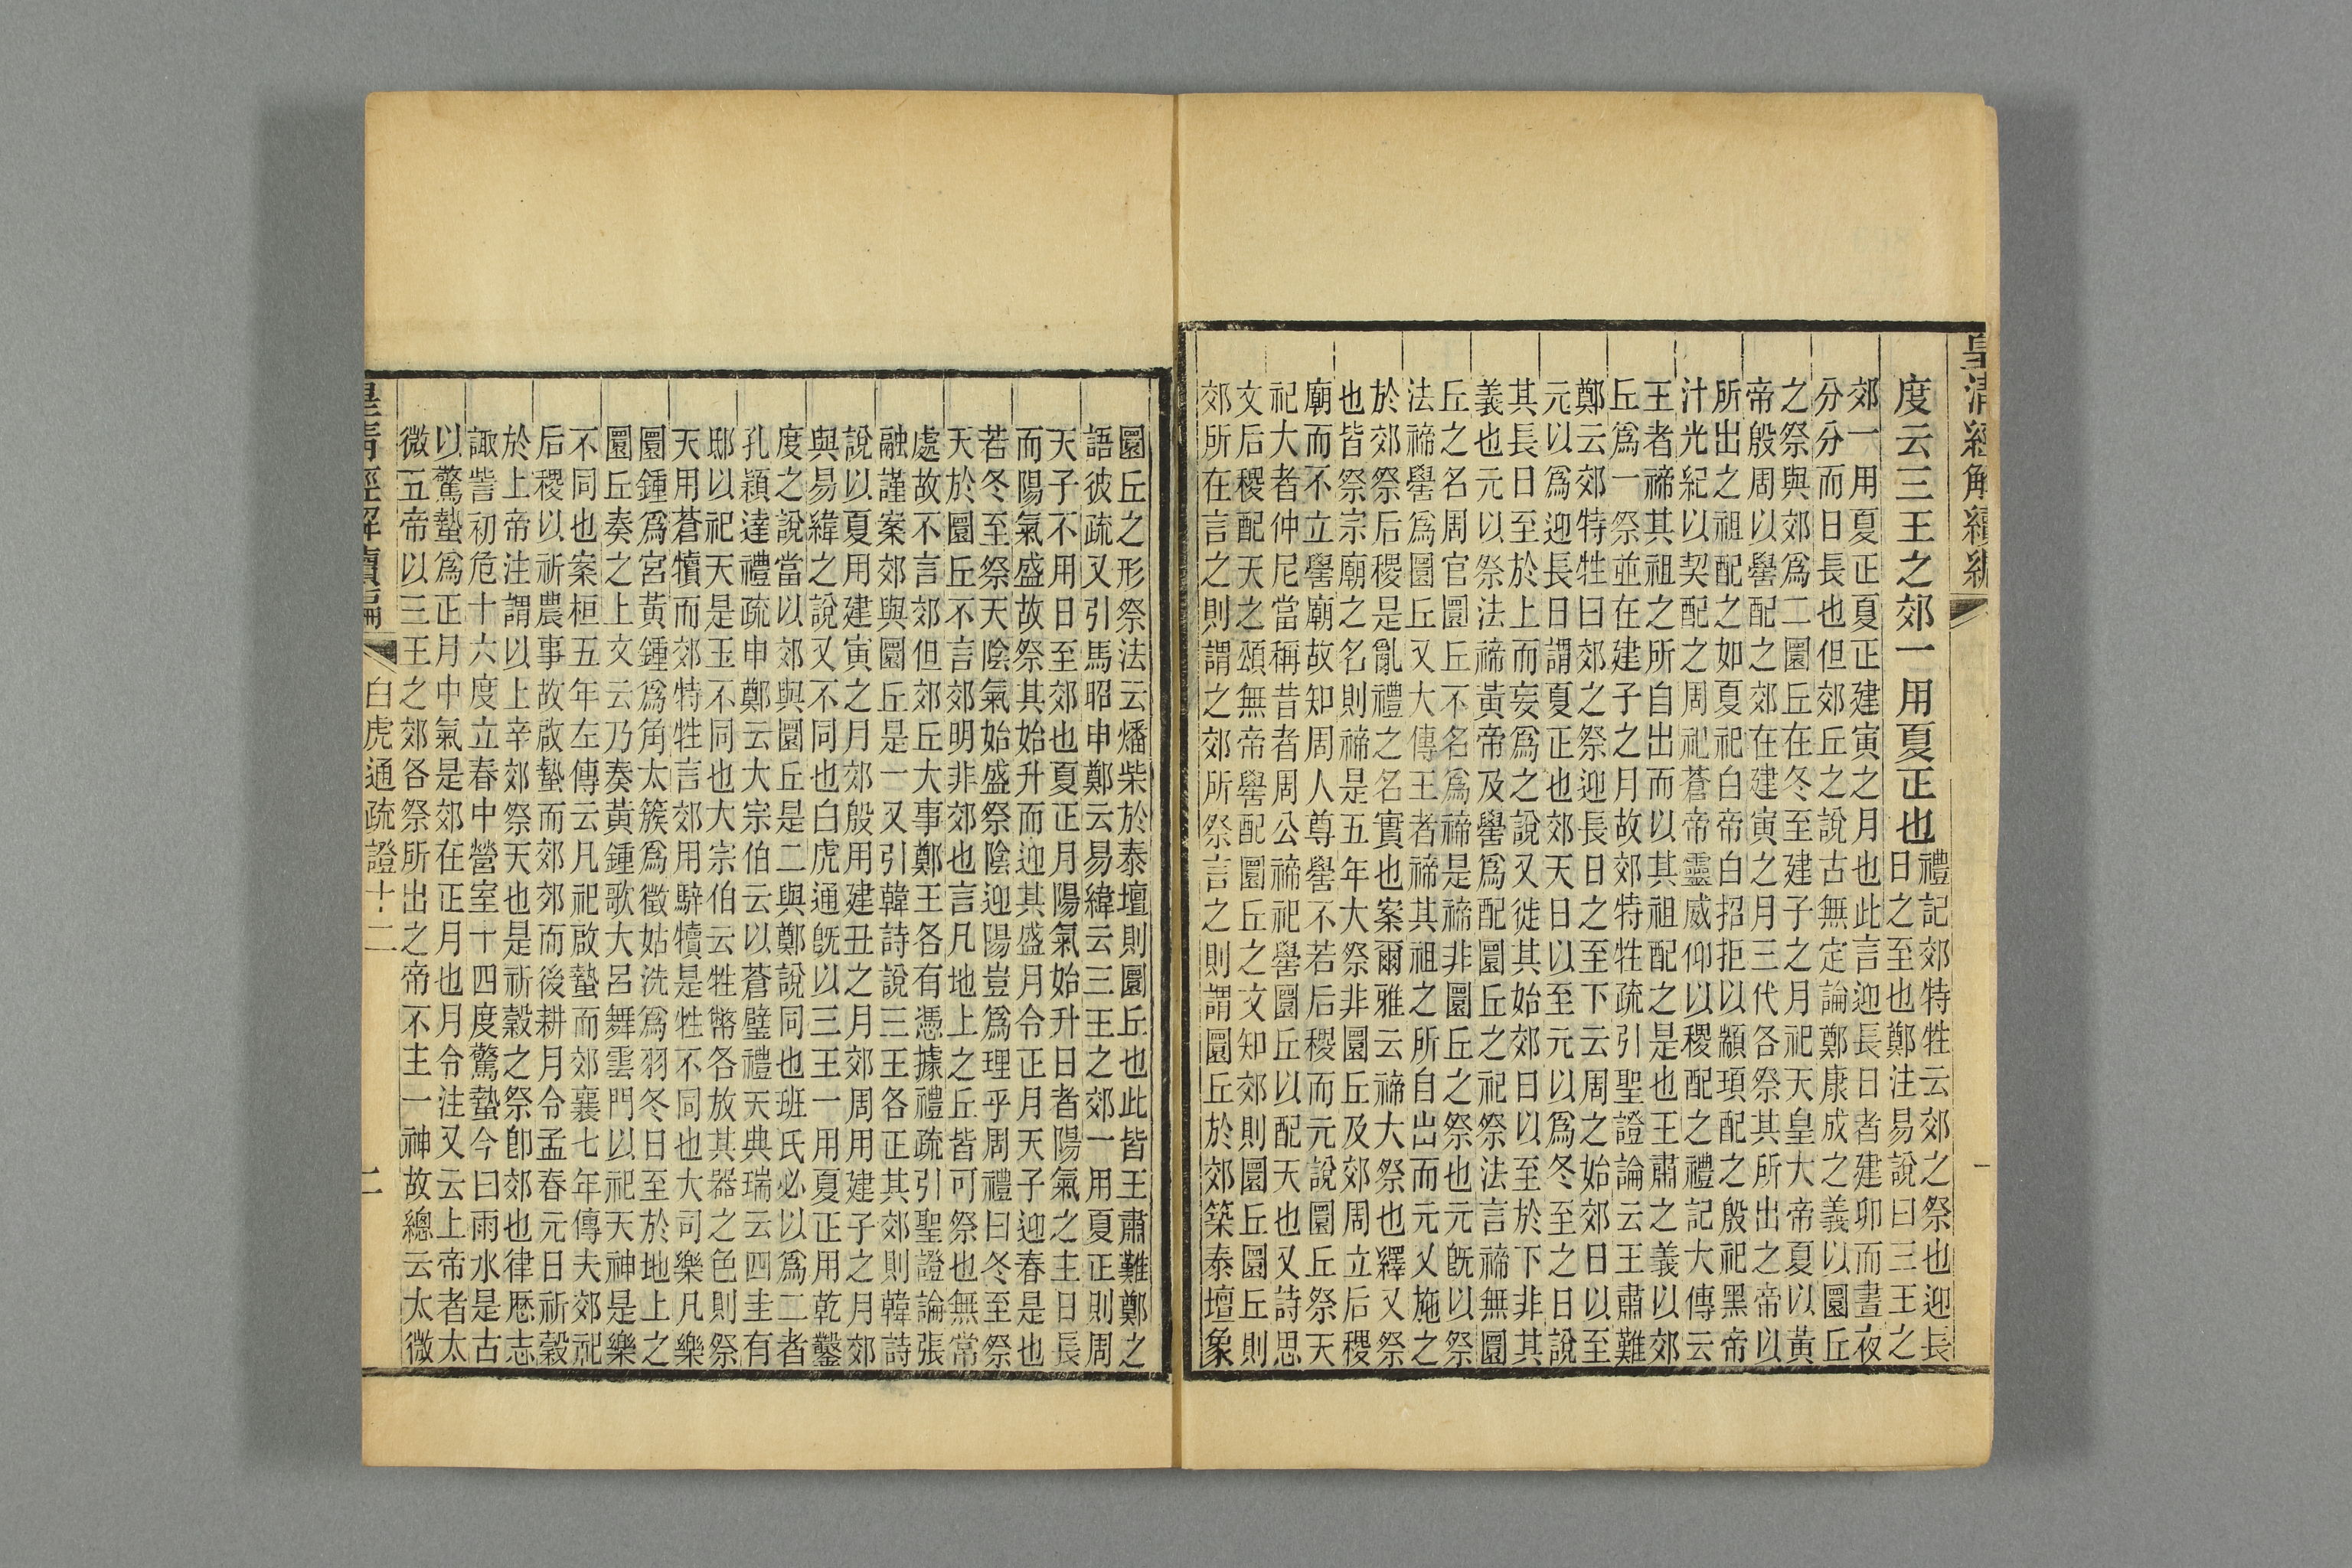 皇清經解續編 一
度云三王之郊一用夏正也
禮記郊特牲云郊之祭也迎長
日之至也鄭注易說曰三王之
郊一用夏正夏正建寅之月也此言迎長日者建卯而晝夜
分分而日長也但郊丘之說古無定論鄭康成之義以圜丘
之祭與郊爲二圜丘在冬至建子之月祀天皇大帝夏以黃
帝殷周以嚳配之郊在建寅之月三代各祭其所出之帝以
所出之祖配之如夏祀白帝白招拒以顓頊配之殷祀黑帝
汁光紀以契配之周祀蒼帝靈威仰以稷配之禮記大傳云
王者禘其祖之所自出而以其祖配之是也王肅之義以郊
丘爲一祭並在建子之月故郊特牲疏引聖證論云王肅難
鄭云郊特牲曰郊之祭迎長日之至下云周之始郊日以至
元以爲迎長日謂夏正也郊天日以至元以爲冬至之日說
其長日至於上而妄爲之說又徙其始郊日以至於下非其
義也元以祭法禘黃帝及嚳爲配圜丘之祀祭法言禘無圜
丘之名周官圜丘不名爲禘是禘非圜丘之祭也元旣以祭
法禘嚳爲圜丘又大傳王者禘其祖之所自出而元又施之
於郊祭后稷是亂禮之名實也案爾雅云禘大祭也繹又祭
也皆祭宗廟之名則禘是五年大祭非圜丘及郊周立后稷
廟而不立嚳廟故知周人尊嚳不若后稷而元說圜丘祭天
祀大者仲尼當稱昔者周公禘祀嚳圜丘以配天也又詩思
文后稷配天之頌無帝嚳配圜丘之文知郊則圜丘圜丘則
郊所在言之則謂之郊所祭言之則謂圜丘於郊築泰壇象
圜丘之形祭法云燔柴於泰壇則圜丘也此皆王肅難鄭之
語彼疏又引馬昭申鄭云易緯云三王之郊一用夏正則周
天子不用日至郊也夏正月陽氣始升日者陽氣之主日長
而陽氣盛故祭其始升而迎其盛月令正月天子迎春是也
若冬至祭天陰氣始盛祭陰迎陽豈爲理乎周禮曰冬至祭
天於圜丘不言郊明非郊也言凡地上之丘皆可祭也無常
處故不言郊但郊丘大事鄭王各有憑據禮疏引聖證論張
融謹案郊與圜丘是一又引韓詩說三王各正其郊則韓詩
說以夏用建寅之月郊殷用建丑之月郊周用建子之月郊
與易緯之說又不同也白虎通旣以三王一用夏正用乾鑿
度之說當以郊與圜丘是二與鄭說同也班氏必以爲二者
孔穎達禮疏申鄭云大宗伯云以蒼璧禮天典瑞云四圭有
邸以祀天是玉不同也大宗伯云牲幣各放其器之色則祭
天用蒼犢而郊特牲言郊用騂犢是牲不同也大司樂凡樂
圜鍾爲宮黃鍾爲角太簇爲徵姑洗爲羽冬日至於地上之
圜丘奏之上文云乃奏黃鍾歌大呂舞雲門以祀天神是樂
不同也案桓五年左傳云凡祀啟蟄而郊襄七年傳夫郊祀
后稷以祈農事故啟蟄而郊郊而後耕月令孟春元日祈穀
於上帝注謂以上辛郊祭天也是祈穀之祭卽郊也律厯志
諏訾初危十六度立春中營室十四度驚蟄今曰雨水是古
以驚蟄爲正月中氣是郊在正月也月令注又云上帝者太
微五帝以三王之郊各祭所出之帝不主一神故總云太微
皇清經解續編 白虎通疏證十二 二